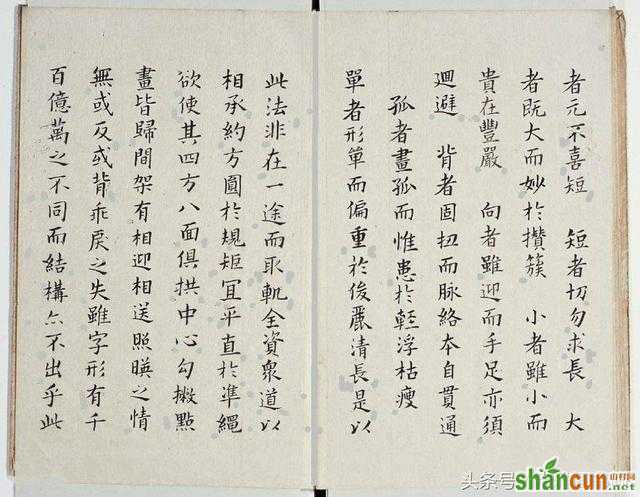 者元不喜短　短者切勿求長　大
者既大而妙於攢簇　小者雖小而
貴在豐嚴　向者雖迎而手足亦須
廻避　背者固扭而脉絡本自貫通
孤者畫孤而惟患於輕浮枯瘦
單者形單而偏重於俊麗清長是以
此法非在一途而取軌全資衆道以
相承約方圓於規矩冝平直於準繩
欲使其四方八面俱拱中心勾撇點
畫皆歸間架有相迎相送照暎之情
無或反或背乖戾之失雖字形有千
百億萬之不同而結構亦不出乎此
头条号
shancun
山村网
.net